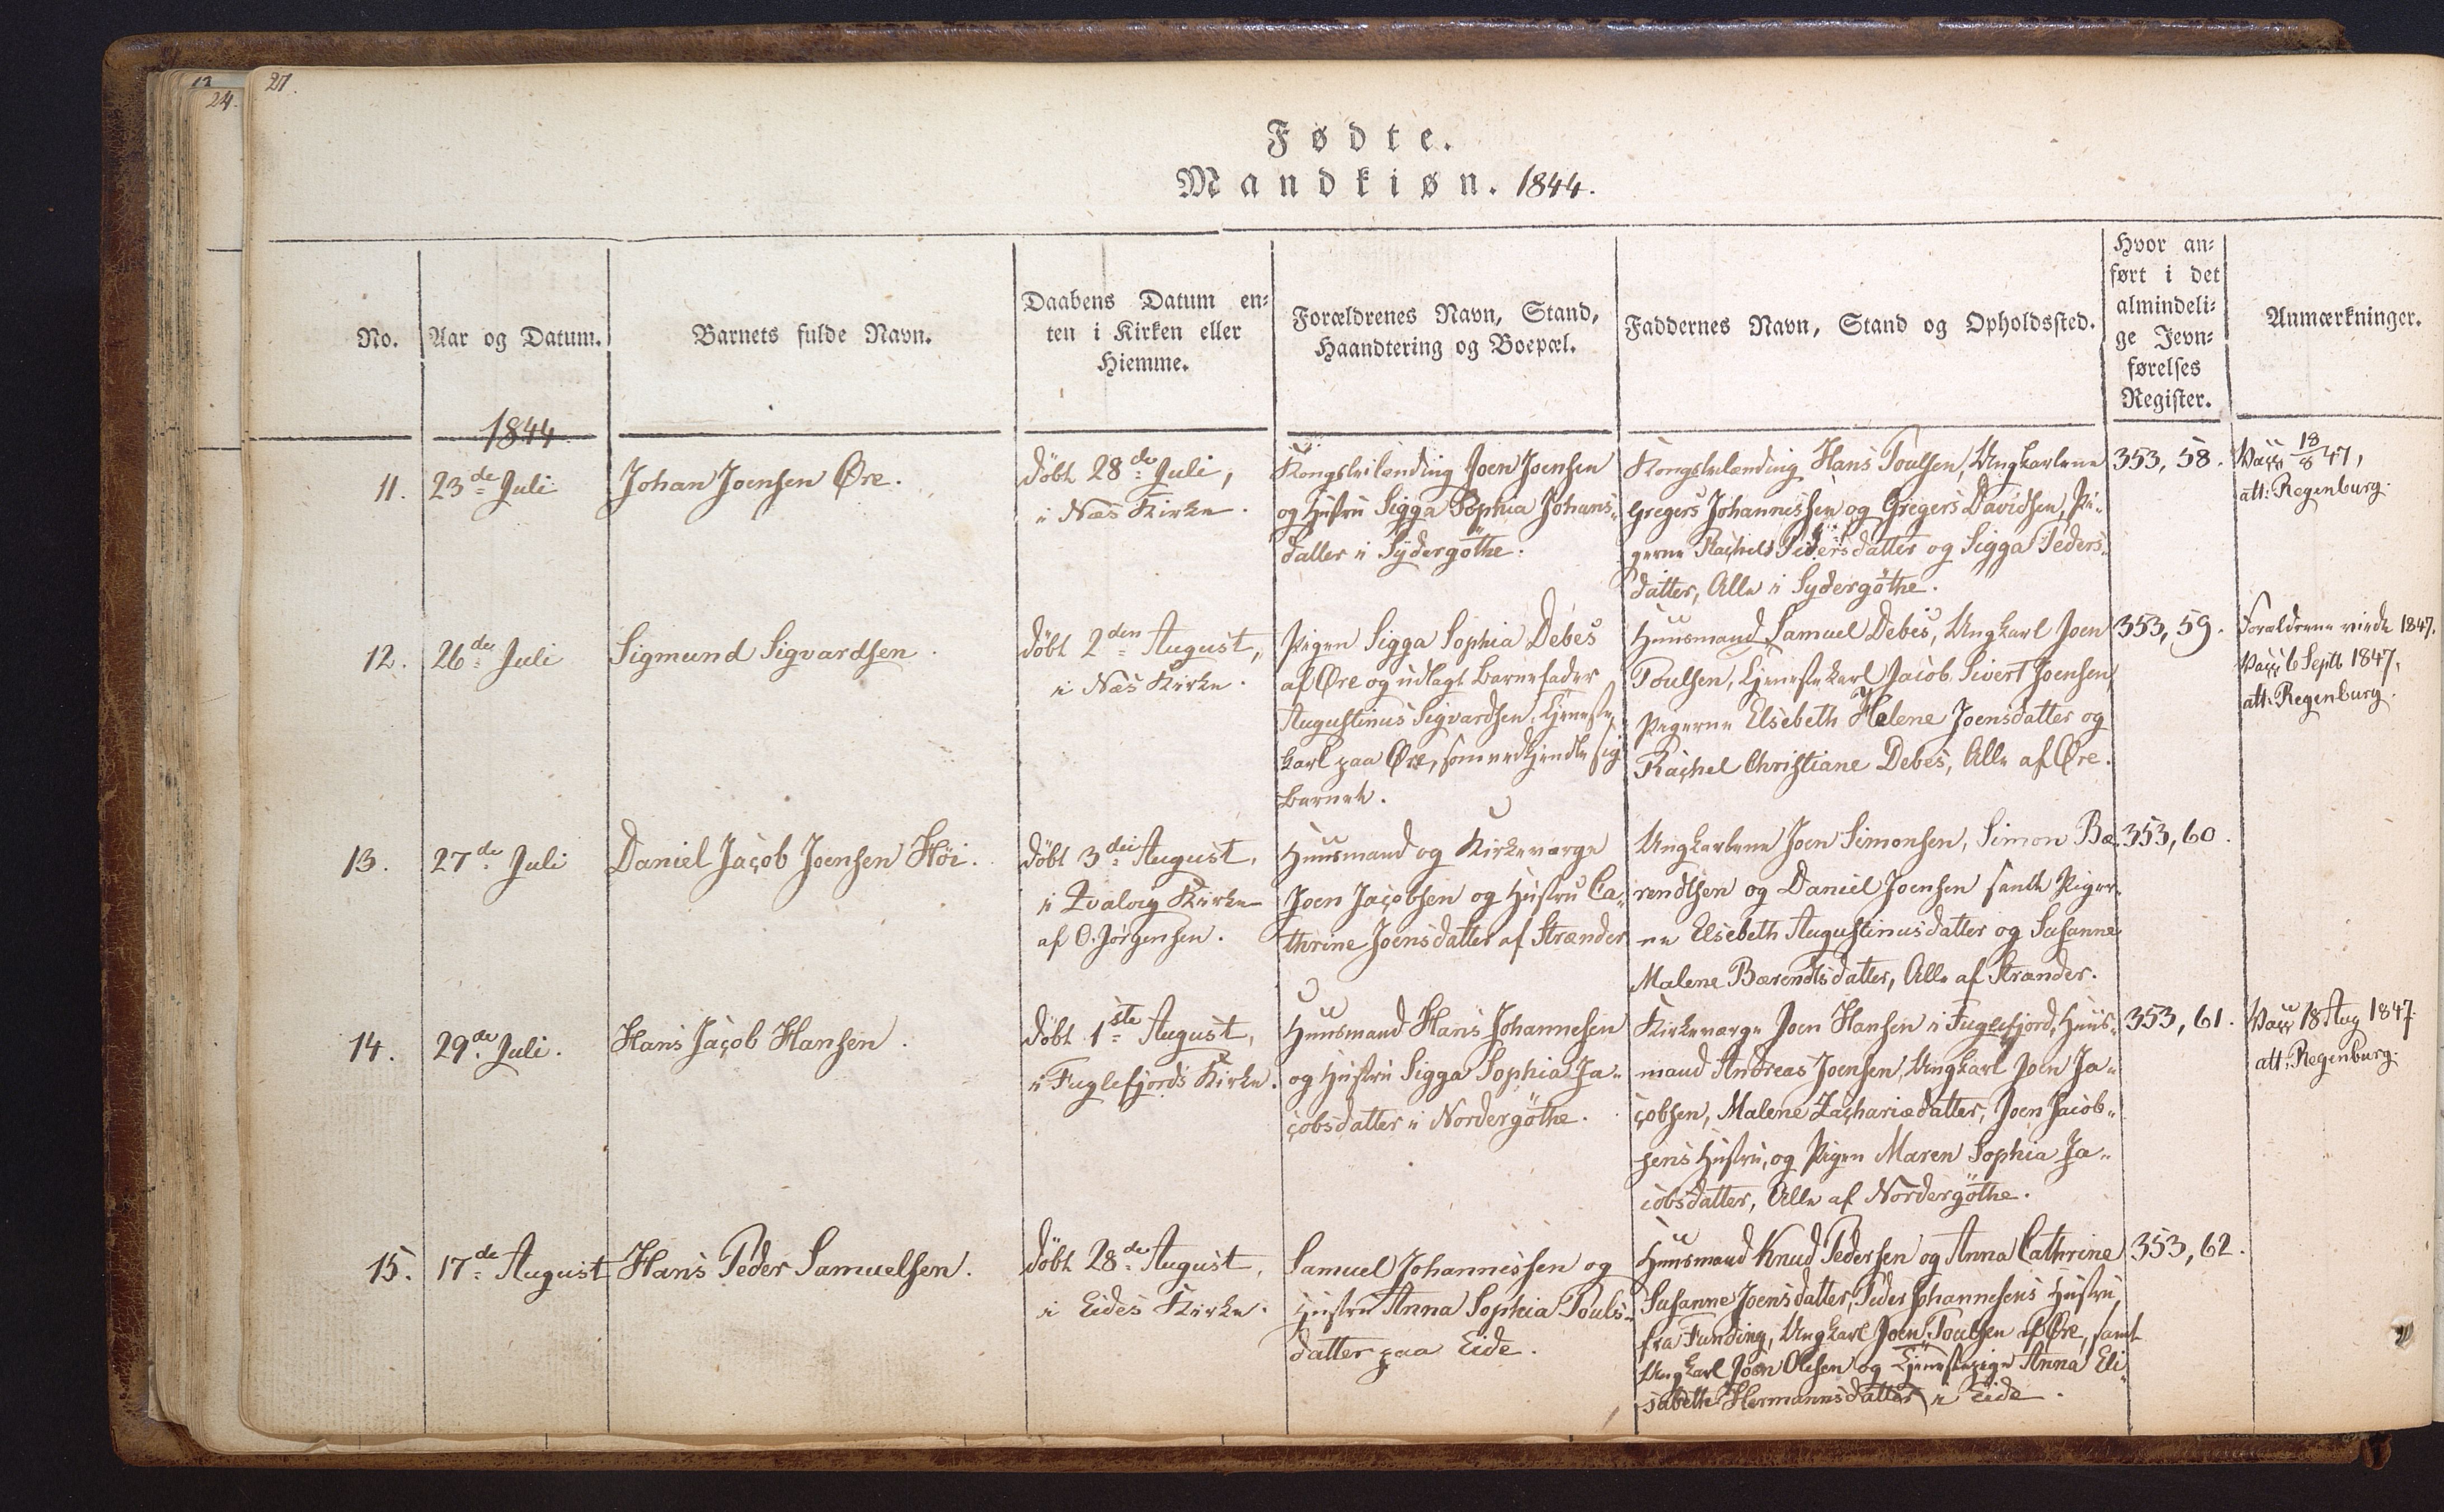 27.
24.
Fødte.
Mandkiøn. 1844.
No.
Aar og Datum.
Barnets fulde Navn.
Daabens Datum en-
ten i Kirken eller
Hiemme.
Forældrenes Navn, Stand,
Haandtering og Boepæl.
Faddernes Navn, Stand og Opholdssted.
Hvor an-
ført i det
almindeli-
ge Jevn-
førelses
Register.
Anmærkninger.
1844
11.
23de Juli
Johan Joensen Øre.
döbt 28de Juli,
i Næs Kirke.
Kongsleilænding Joen Joensen
og Hustru Sigga Sophia Johans-
datter i Sydergøthe.
Kongsleilænding Hans Poulsen, Ungkarlene
Gregers Johannessen og Gregers Davidsen, Pi-
gerne Rachel Pedersdatter og Sigga Peders-
datter, Alle i Sydergøthe.
353, 58.
Vacc 18/8 47,
att: Regenburg.
12.
26de Juli
Sigmund Sigvardsen.
döbt 2den August,
i Næs Kirke.
Pigen Sigga Sophia Debes
af Øre og udlagt Barnefader
Augustinus Sigvardsen, Tjeneste-
karl paa Øre, som vedkjendte sig
Barnet.
Huusmand Samuel Debes, Ungkarl Joen
Poulsen, Tjenestekarl Jacob Sivert Joensen,
Pigerne Elsebeth Helene Joensdatter og
Rachel Christiane Debes, Alle af Øre.
353, 59.
Forældrene viede 1847.
Vacc 6 Septb 1847,
att: Regenburg.
13.
27de Juli
Daniel Jacob Joensen Høi.
döbt 3die August,
i Qvalvig Kirke
af O. Jørgensen.
Huusmand og Kirkeværge
Joen Jacobsen og Hustru Ca-
thrine Joensdatter af Strænder
Ungkarlene Joen Simonsen, Simon Bæ-
rendtsen og Daniel Joensen samt Piger-
ne Elsebeth Augustinusdatter og Susanne
Malene Bærendtsdatter, Alle af Strænder.
353, 60.
14.
29de Juli.
Hans Jacob Hansen.
döbt 1ste August,
i Fuglefjords Kirke.
Huusmand Hans Johannesen
og Hustru Sigga Sophia Ja-
cobsdatter i Nordergøthe.
Kirkeværge Joen Hansen i Fuglefjord, Huus-
mand Andreas Joensen, Ungkarl Joen Ja-
cobsen, Malene Zachariædatter, Joen Jacob-
sens Hustru, og Pigen Maren Sophia Ja-
cobsdatter, Alle af Nordergøthe.
353, 61.
Vacc 18 Aug 1847.
att: Regenburg.
15.
17de August
Hans Peder Samuelsen.
döbt 28de August,
i Eides Kirke.
Samuel Johannessen og
Hustru Anna Sophia Pouls-
datter paa Eide.
Huusmand Knud Pedersen og Anna Cathrine
Susanne Joensdatter, Peder Johannesens Hustru,
fra Funding, Ungkarl Joen Poulsen af Øre, samt
Ungkarl Joen Olesen og Tjenestepige Anna Eli-
sabeth Hermannsdatter i Eide.
353, 62.